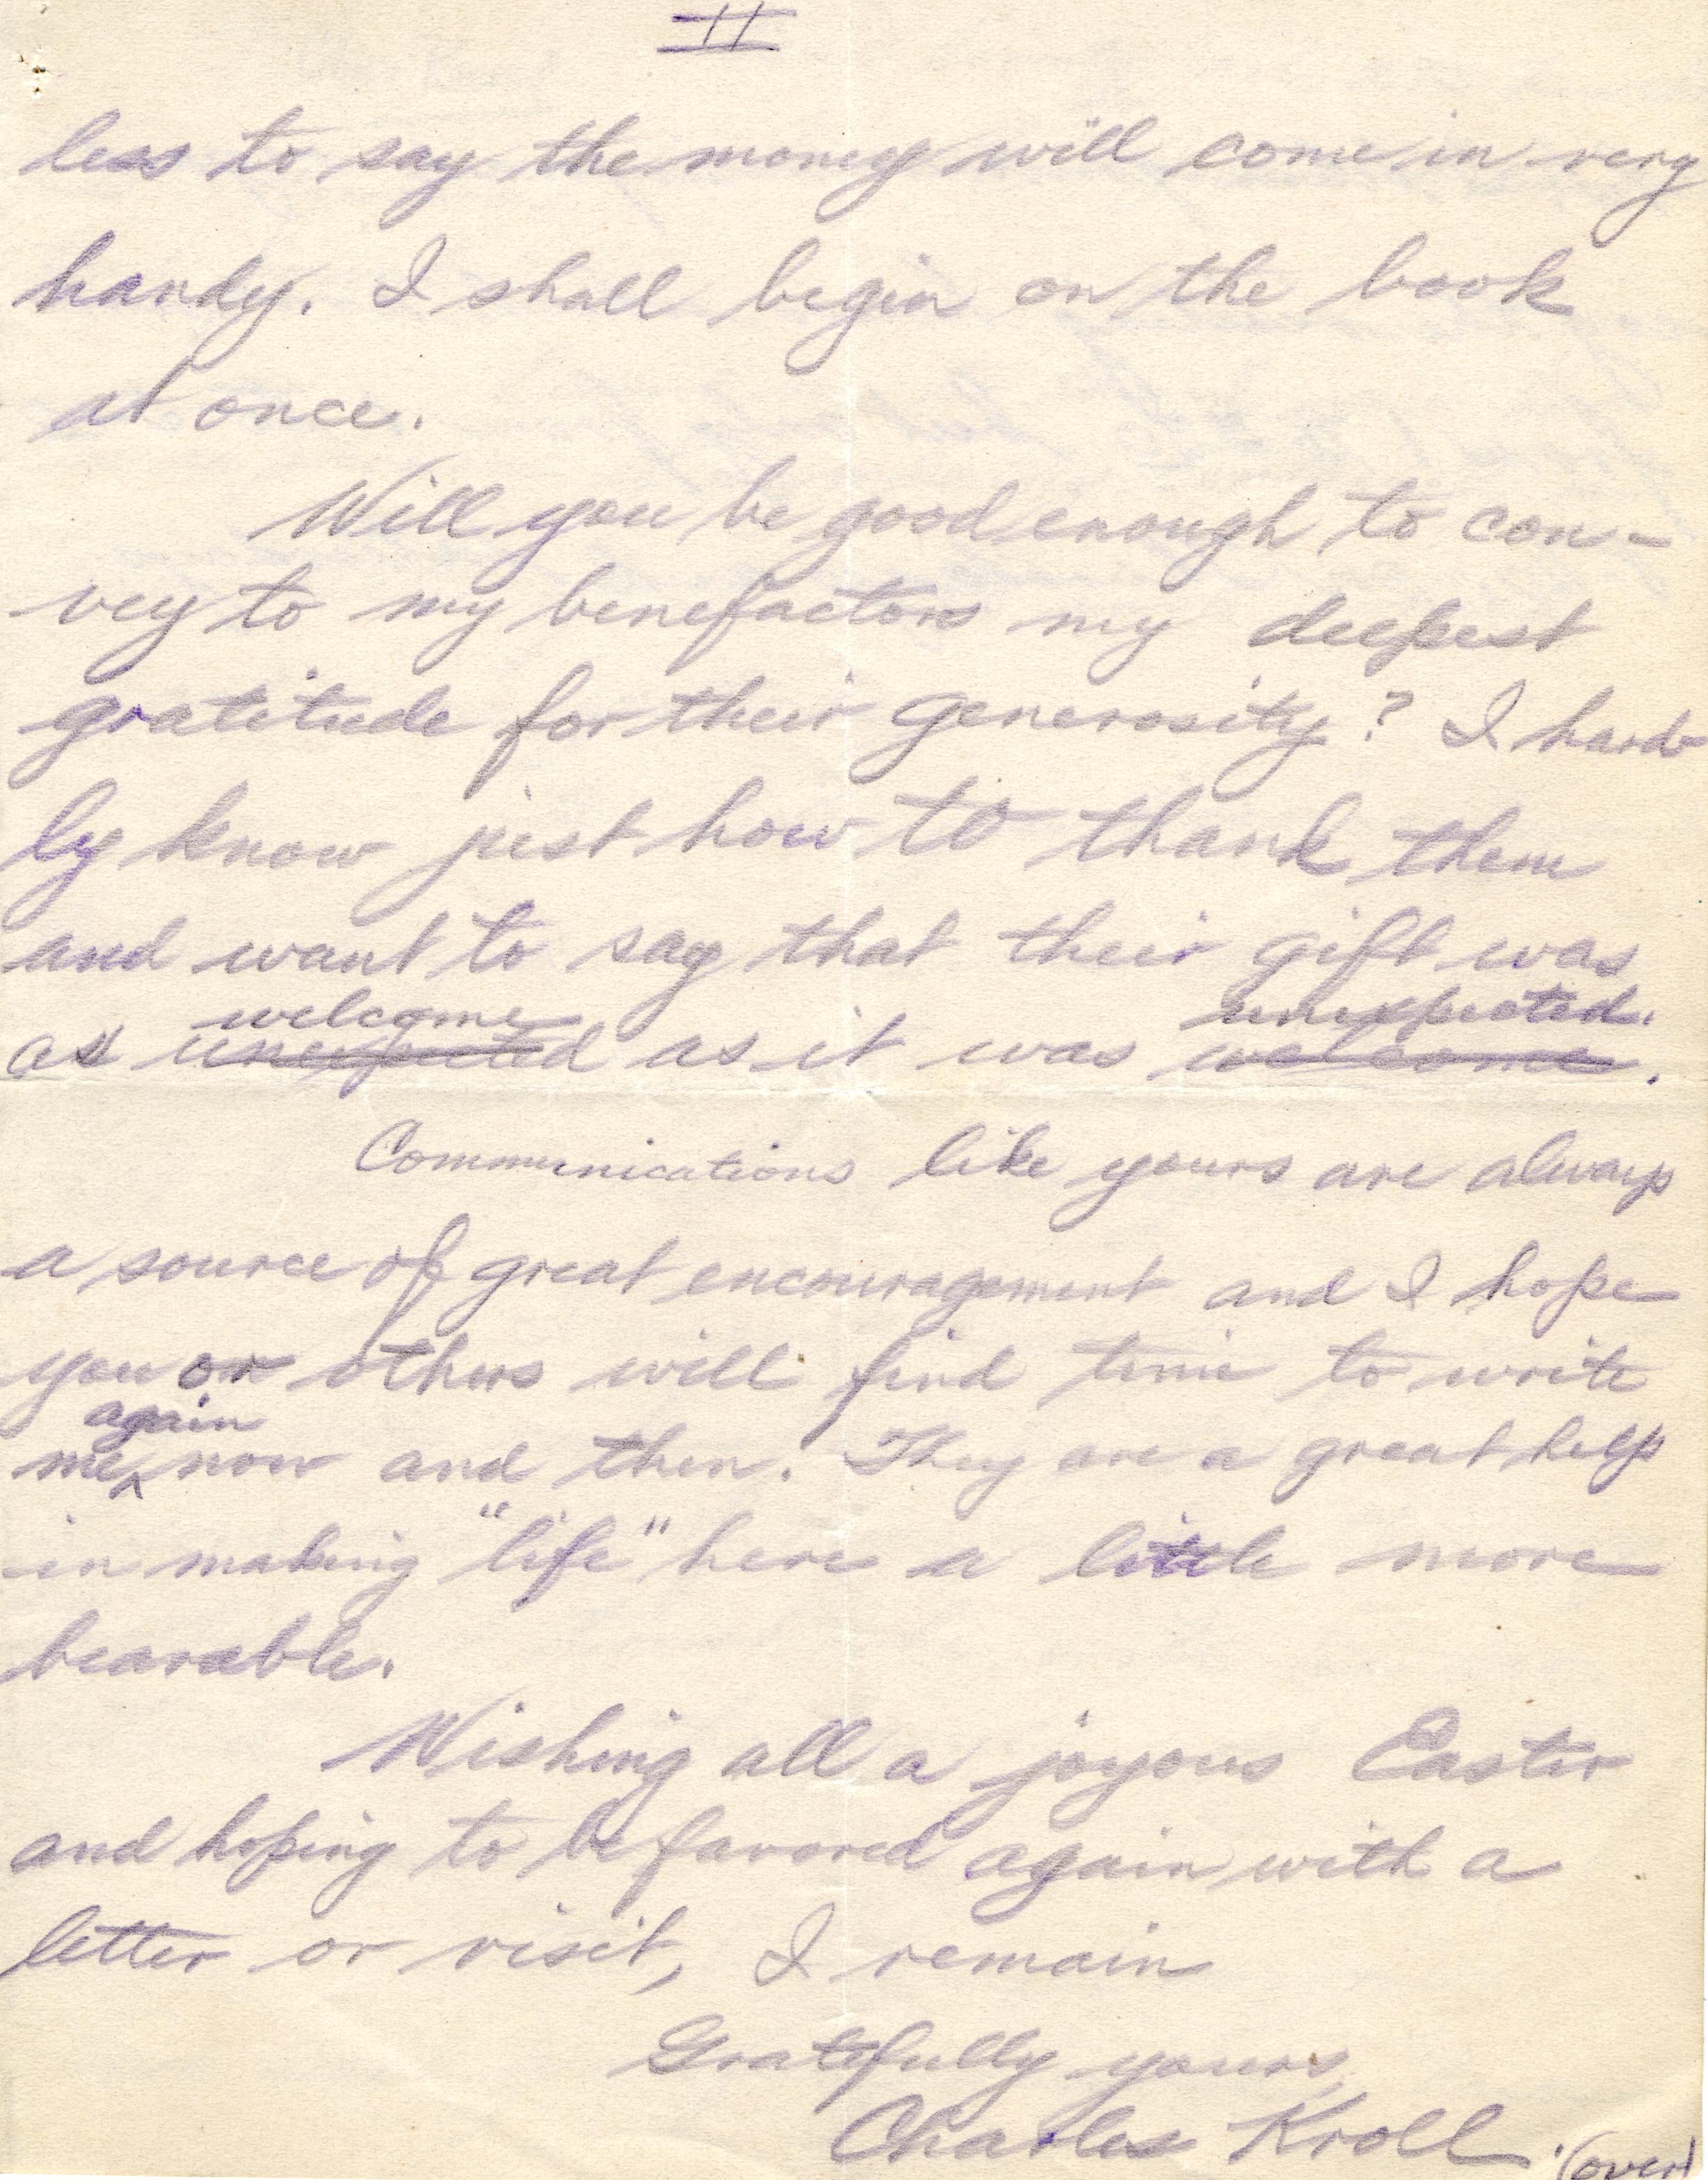 II
less to say the money will come in very
handy. I shall begin on the book
at once.
Will you be good enough to con-
vey to my benefactors my deepest
gratitude for their generosity? I hard-
ly know just how to thank them
and want to say that their gift was
welcome unexpected.
as unexpected as it was welcome.
Communications like yours are always
a source of great encouragement and I hope
you or others will find time to write
again
me ^ now and then. They are a great help
in making "life" here a little more
bearable.
Wishing all a joyous Easter
and hoping to be favored again with a
letter or visit, I remain
Gratefully yours,
Charles Kroll.
(over)